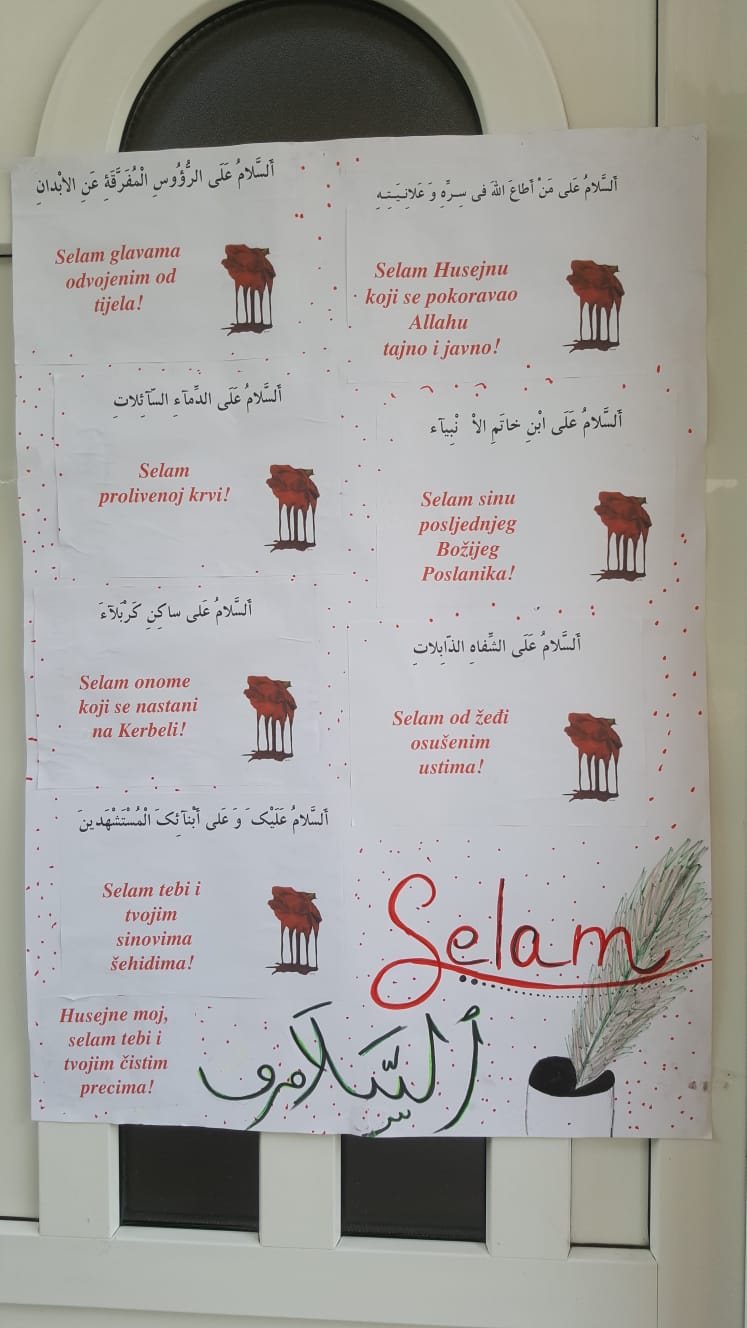 اَلسَّلامُ عَلَى الرُّؤُوسِ الْمُفَرَّقَةِ عَنِ الاَبْدانِ
Selam glavama
odvojenim od
tijela!
اَلسَّلامُ عَلى مَنْ أَطاعَ اللهَ فى سِـرِّهِ وَ عَلانِـيَـتِـهِ
Selam Husejnu
koji se pokoravao
Allahu
tajno i javno!
اَلسَّلامُ عَلَى الدِّمآءِ السّآئِلاتِ
Selam
prolivenoj krvi!
اَلسَّلامُ عَلَى ابْنِ خاتَمِ الاَْ نْبِيآء
Selam sinu
posljednjeg
Božijeg
Poslanika!
اَلسَّلامُ عَلى ساكِنِ كَرْبَلآءَ
Selam onome
koji se nastani
na Kerbeli!
اَلسَّلامُ عَلَى الشِّفاهِ الذّابِلاتِ
Selam od žeđi
osušenim
ustima!
اَلسَّلامُ عَلَيْکَ وَ عَلى أَبْنآئِکَ الْمُسْتَشْهَدينَ
Selam tebi i
tvojim
sinovima
šehidima!
Husejne moj,
selam tebi i
tvojim čistim
precima!
Selam